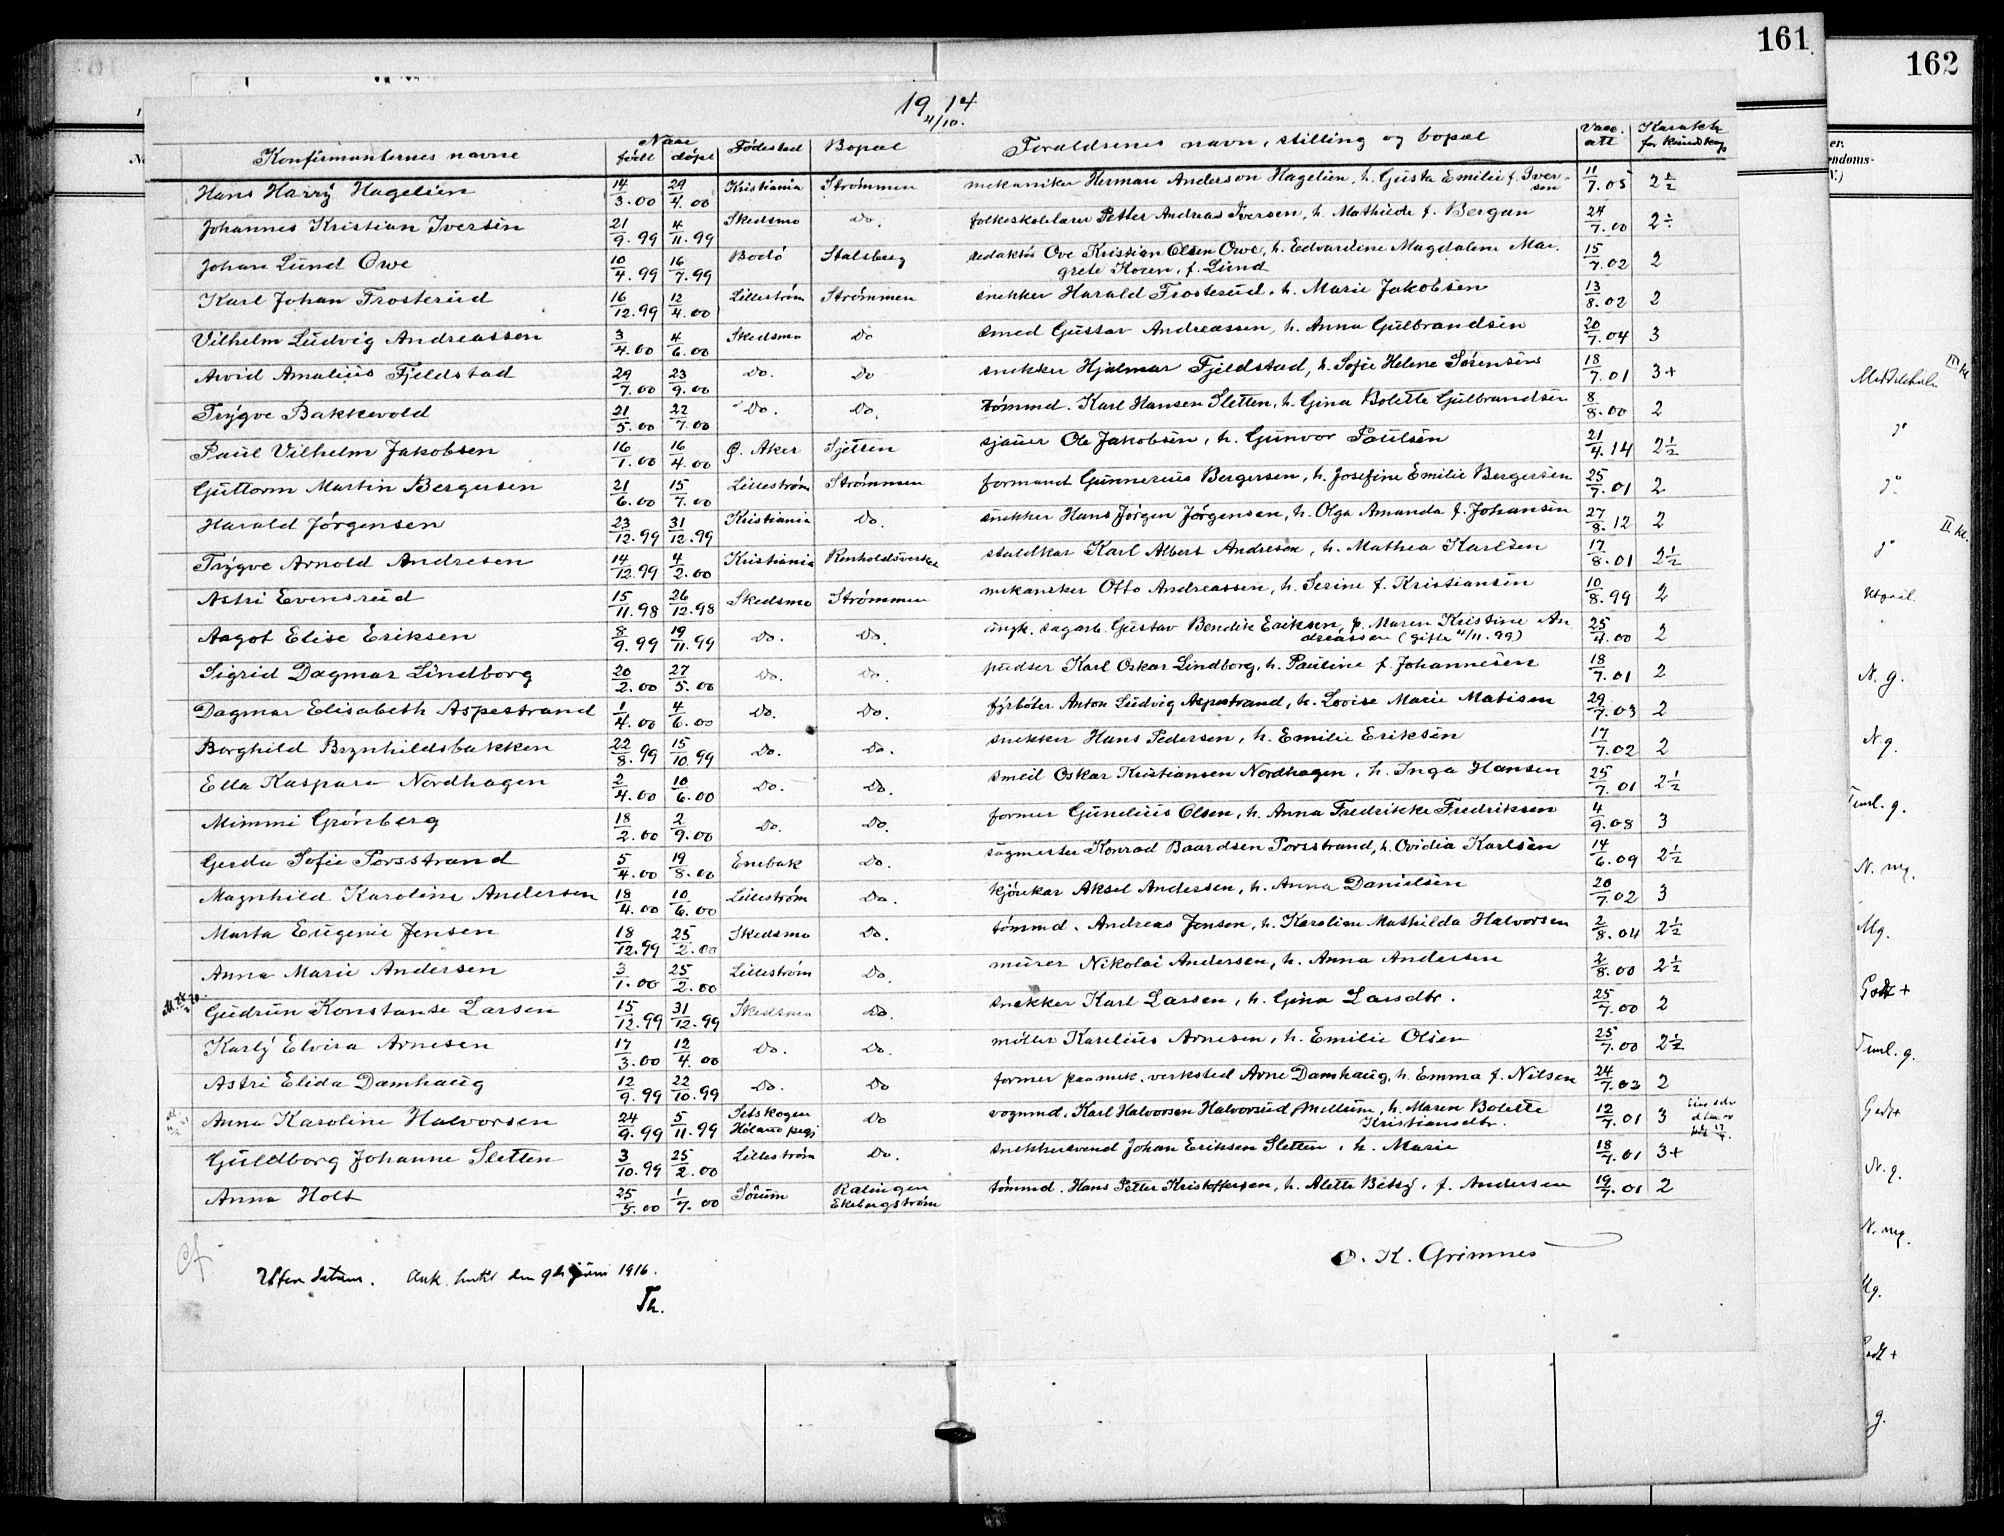 161
162
1914
4/10.
Konfirmanternes navne Naar født døpt Fødested Bopæl Forældrenes navn, stilling og bopæl Vacc. att. Karakter for kundskap
Hans Harry Hagelien 14/3.00 29/4.00 Kristiania Strømmen mekaniker Herman Anderson Hagelien, h. Gusta Emilie f. Iversen 11/7.05 2½
Johannes Kristian Iversen 21/9.99 4/11.99 Skedsmo Do. folkeskolelærer Petter Andreas Iversen, h. Mathilde f. Bergan 24/7.00 2÷
Johan Lund Owe 10/4.99 16/7.99 Bodø Stalsberg redaktør Ove Kristian Olsen Owe, h. Edvardine Magdalene Margrete Koren, f. Lund 15/7.02 2
Karl Johan Frosterud 16/12.99 12/4.00 Lillestrøm Strømmen snekker Harald Frosterud, h. Marie Jakobsen 13/8.02 2
Vilhelm Ludvig Andreassen 3/4.00 4/6.00 Skedsmo Do smed Gustav Andreassen, h. Anna Gulbrandsen 20/7.04 3
Arvid Amalius Fjeldstad 29/7.00 23/9.00 Do. Do snekker Hjalmar Fjeldstad, h. Sofie Helene Sørensen 18/7.01 3+
Trygve Bakkevold 21/5.00 22/7.00 Do. Do. tømmd. Karl Hansen Sletten, h. Gina Bolette Gulbrandsen 8/8.00 2
Paul Vilhelm Jakobsen 16/1.00 16/4.00 Ø. Aker Sjetsen sjauer Ole Jakobsen, h. Gunvor Paulsen 21/4.14 2½
Guttorm Martin Bergersen 21/6.00 15/7.00 Lillestrøm Strømmen formand Gunnerius Bergersen, h. Josefine Emilie Bergersen 25/7.01 2
Harald Jørgensen 23/12.99 31/12.99 Kristiania Do. snekker Hans Jørgen Jørgensen, h. Olga Amanda f. Johansen 27/8.12 2
Trygve Arnold Andresen 14/12.99 4/2.00 Kristiania Renholdsverket staldkar Karl Albert Andresen, h. Mathea Karlsen 17/8.01 2½
Astri Evensrud 15/11.98 26/12.98 Skedsmo Strømmen mekaniker Otto Andreassen, h. Serine f. Kristiansen 10/8.99 2
Aagot Elise Eriksen 8/9.99 19/11.99 Do. Do. ungk. sagarb. Gustav Bendik Eriksen, p. Maren Kristine Andreassen (gifte 4/11.99) 25/4.00 2
Sigrid Dagmar Lindborg 20/2.00 27/5.00 Do. Do. pudser Karl Oskar Lindborg, h. Pauline f. Johannesen 18/7.01 2
Dagmar Elisabeth Aspestrand 1/4.00 4/6.00 Do. Do. fyrbøter Anton Ludvig Aspestrand, h. Lovise Marie Matisen 29/7.03 2
Borghild Brynhildsbakken 22/8.99 15/10.99 Do. Do. snekker Hans Pedersen, h. Emilie Eriksen 17/7.02 2
Ella Kaspara Nordhagen 2/4.00 10/6.00 Do. Do. smed Oskar Kristiansen Nordhagen, h. Inga Hansen 25/7.01 2½
Mimmi Grønberg 18/2.00 2/9.00 Do. Do. former Gunelius Olsen, h. Anna Fredrikke Fredriksen 4/9.08 3
Gerda Sofie Porsstrand 5/4.00 19/8.00 Enebak Do. sagmester Konrad Baardsen Porsstrand, h. Ovidia Karlsen 14/6.09 2½
Magnhild Karoline Andersen 18/4.00 10/6.00 Lillestrøm Do. kjørekar Aksel Andersen, h. Anna Danielsen 20/7.02 3
Marta Eugenie Jensen 18/12.99 25/2.00 Skedsmo Do. tømmd. Andreas Jensen, h. Karoline Mathilda Halvorsen 2/8.04 2½
Anna Marie Andersen 3/1.00 25/2.00 Lillestrøm Do. murer Nikolai Andersen, h. Anna Andersen 2/8.00 2½
Gudrun Konstanse Larsen 15/12.99 31/12.99 Skedsmo Do. snekker Karl Larsen, h. Gina Larsdtr. 25/7.00 2
Karly Elvira Arnesen 17/3.00 12/4.00 Do. Do. møller Karelius Arnesen, h. Emilie Olsen 25/7.00 2½
Astri Elida Damhaug 12/9.99 22/10.99 Do. Do former paa mek. verksted Arne Damhaug, h. Emma f. Nilsen 24/7.03 2
Anna Karoline Halvorsen 24/9.99 5/11.99 Setskogen Høland prgj Do vognmd. Karl Halvorsen Halvorsrud Mellum, h. Maren Bolette Kristiansdtr. 12/7.01 3
Guldborg Johanne Sletten 3/10.99 25/2.00 Lillestrøm Do. snekkersvend Johan Eriksen Sletten, h. Marie 18/7.01 3+
Anna Holt 25/5.00 1/7.00 Sørum Rælingen Ekebergstrøm tømmd. Hans Petter Kristoffersen, h. Alette Betsy, f. Andersen 19/7.01 2
O. K. Grimnes
den 9de juni 1916.
Th.
N. g.
N g.
Temml. g.
N. mg.
Mg.
Godt +
Temml. g.
Godt
N. g.
N. mg.
Mg.
Godt +
g.